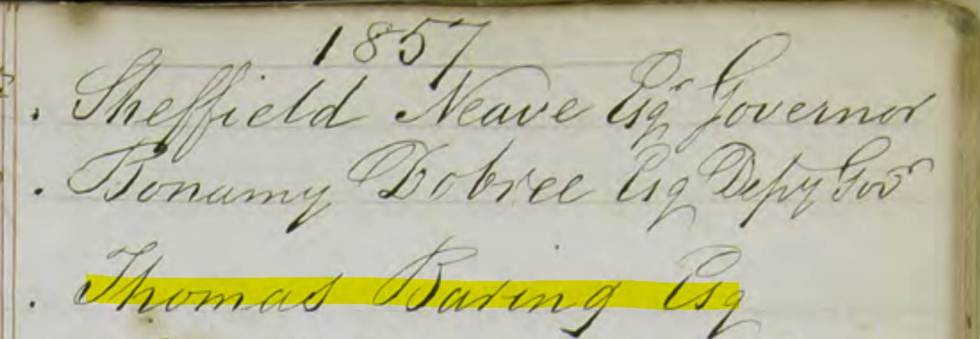 1857
Sheffield Neave Esqr Governor
Bonamy Dobree Esq Depy Govr
Thomas Baring Esq